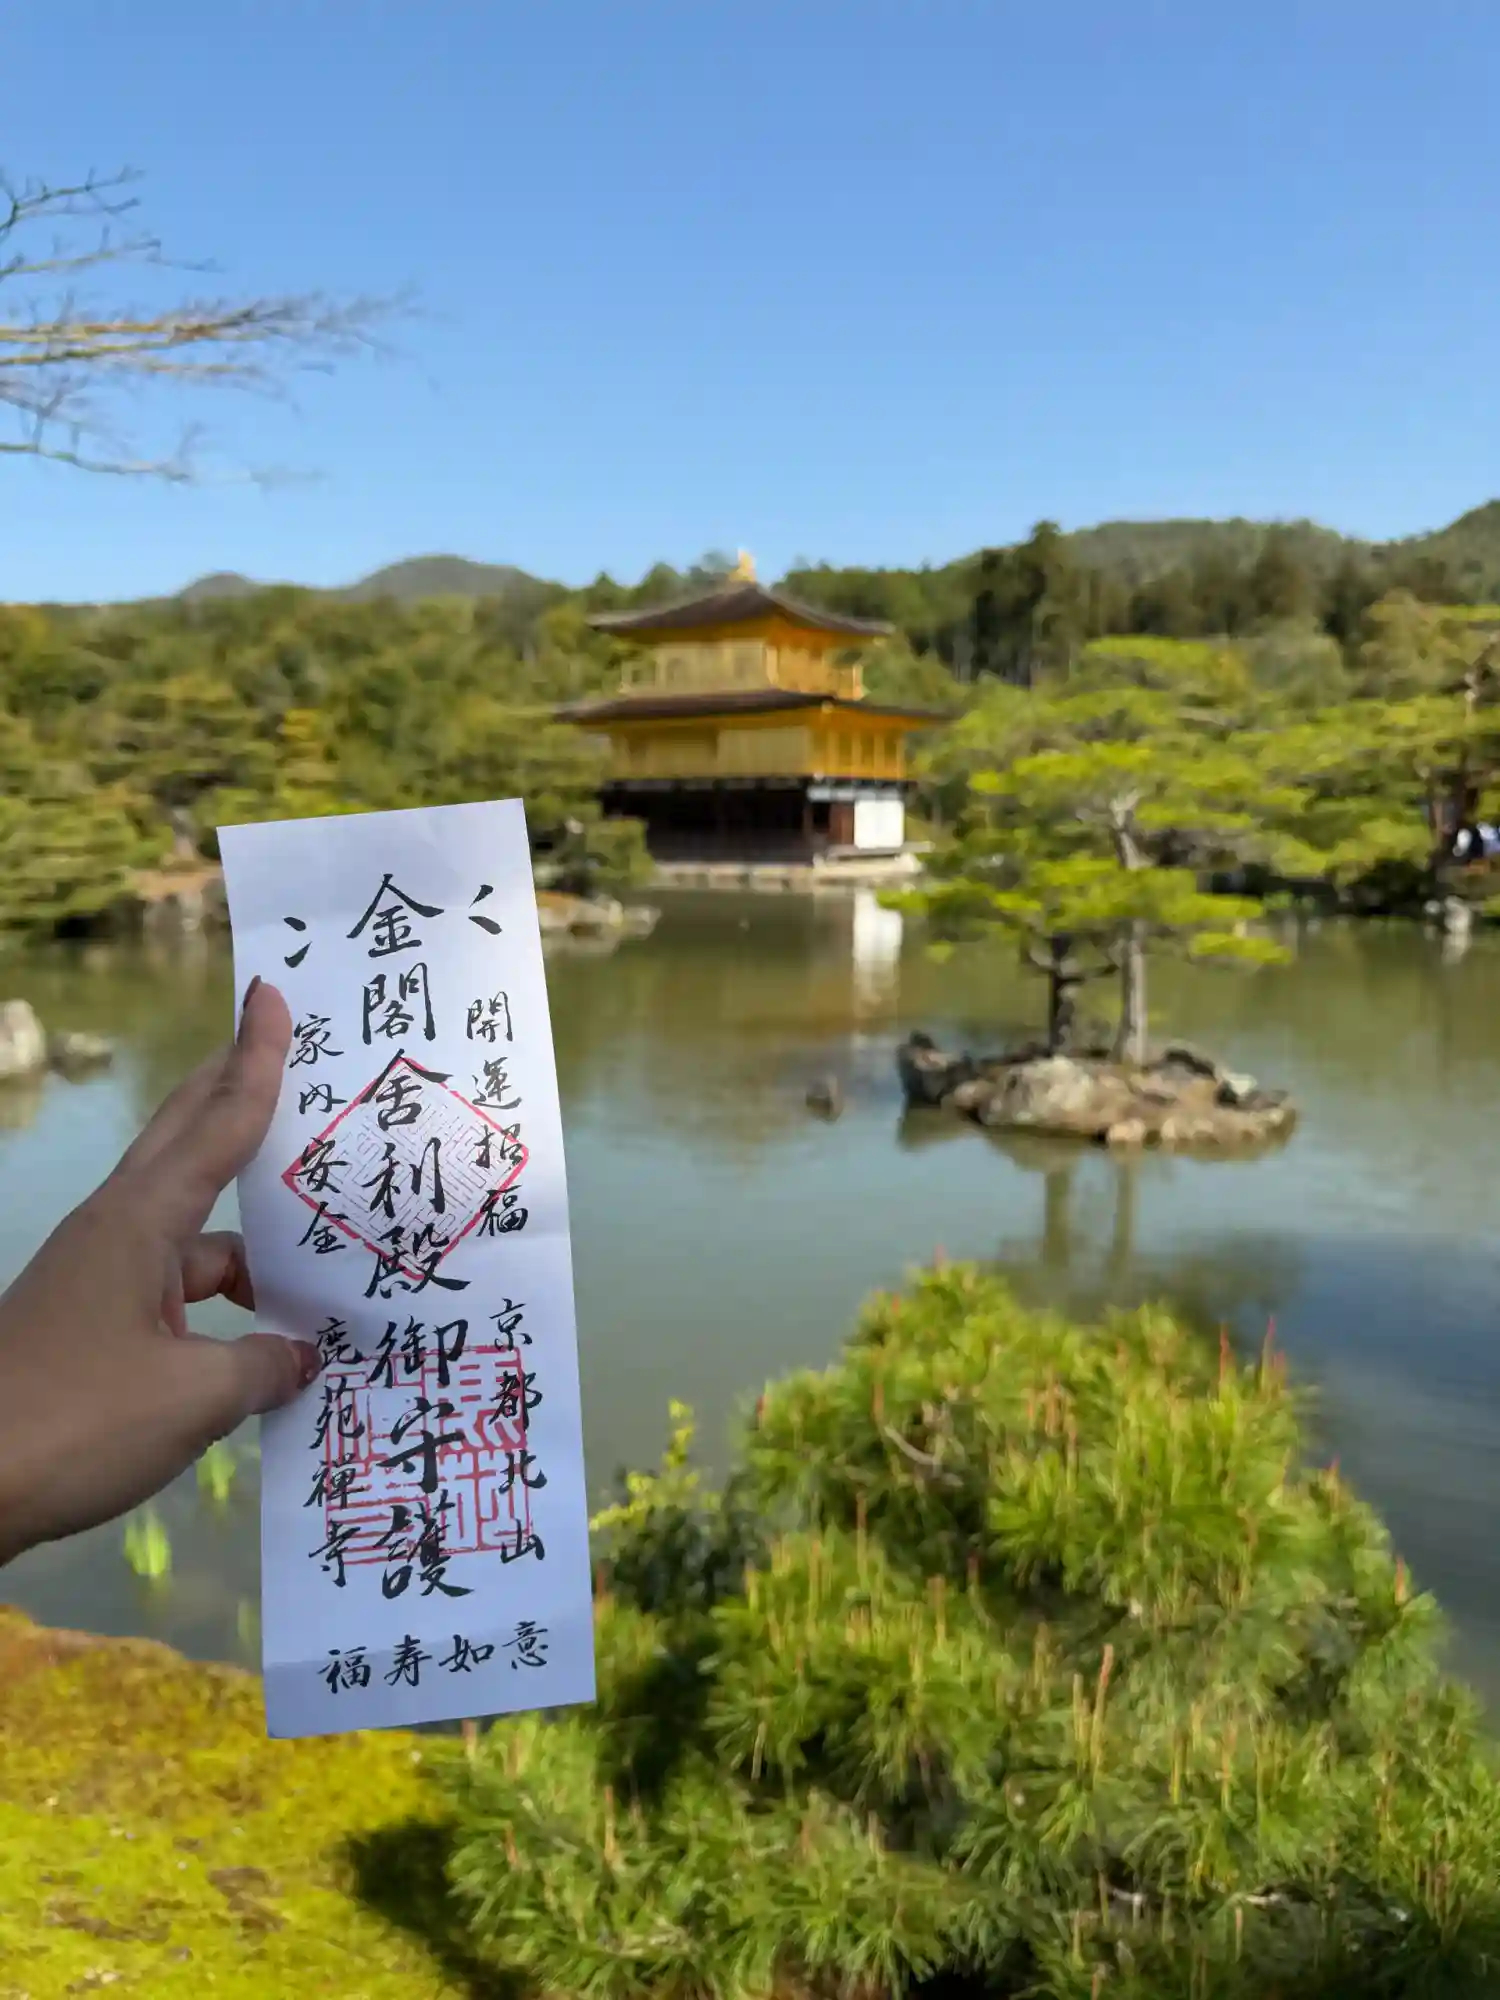 開運招福
京都北山
金閣舎利殿御守護
家内安全
鹿苑禅寺
福寿如意